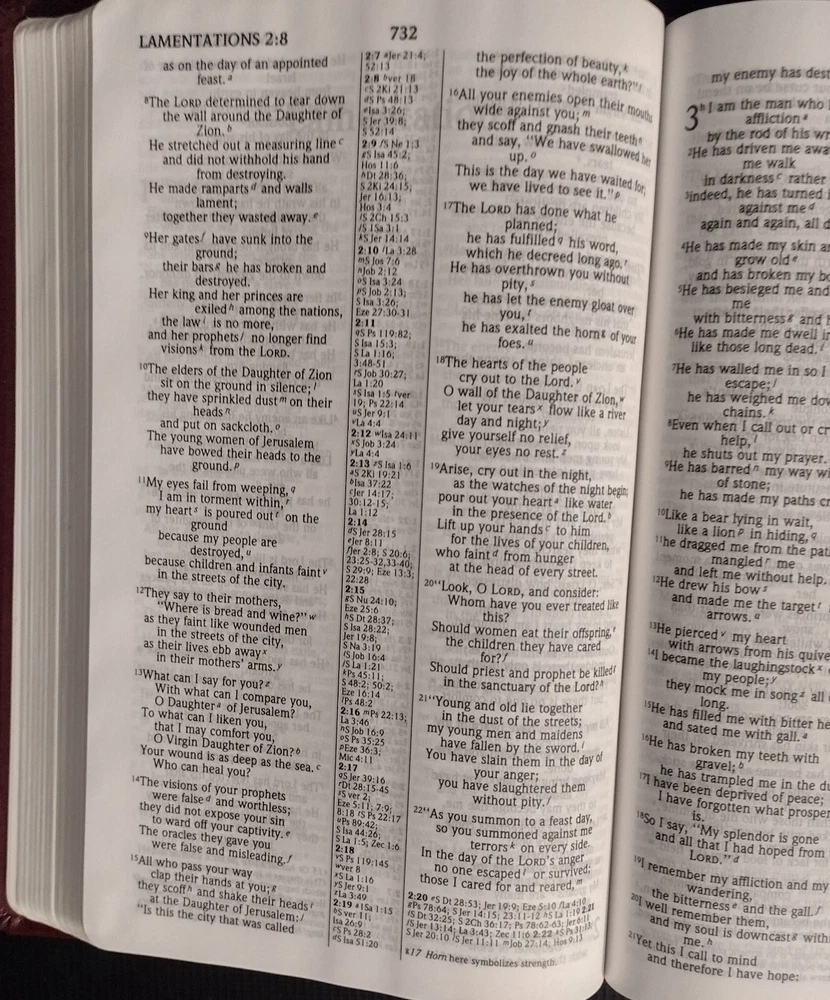 LAMENTATIONS 2:8
732
as on the day of an appointed
feast. a
8The LORD determined to tear down
the wall around the Daughter of
Zion. b
He stretched out a measuring line c
and did not withhold his hand
from destroying.
He made ramparts d and walls
lament;
together they wasted away. e
9Her gates f have sunk into the
ground;
their bars g he has broken and
destroyed.
Her king and her princes are
exiled h among the nations,
the law i is no more,
and her prophets j no longer find
visions k from the LORD.
10The elders of the Daughter of Zion
sit on the ground in silence; l
they have sprinkled dust m on their
heads n
and put on sackcloth. o
The young women of Jerusalem
have bowed their heads to the
ground. p
11My eyes fail from weeping, q
I am in torment within, r
my heart s is poured out t on the
ground
because my people are
destroyed, u
because children and infants faint v
in the streets of the city.
12They say to their mothers,
"Where is bread and wine?" w
as they faint like wounded men
in the streets of the city,
as their lives ebb away x
in their mothers' arms. y
13What can I say for you? z
With what can I compare you,
O Daughter a of Jerusalem?
To what can I liken you,
that I may comfort you,
O Virgin Daughter of Zion? b
Your wound is as deep as the sea. c
Who can heal you?
14The visions of your prophets
were false d and worthless;
they did not expose your sin
to ward off your captivity. e
The oracles they gave you
were false and misleading. f
15All who pass your way
clap their hands at you; g
they scoff h and shake their heads i
at the Daughter of Jerusalem: j
"Is this the city that was called
2:7 aJer 21:4;
52:13
2:8 bver 18
cS 2Ki 21:13
dS Ps 48:13
eIsa 3:26;
S Jer 39:8;
S 52:14
2:9 fS Ne 1:3
gS Isa 45:2;
Hos 11:6
hDt 28:36;
S 2Ki 24:15;
Jer 16:13;
Hos 3:4
iS 2Ch 15:3
jS 1Sa 3:1
kS Jer 14:14
2:10 lLa 3:28
mS Jos 7:6
nJob 2:12
oS Isa 3:24
pS Job 2:13;
S Isa 3:26;
Eze 27:30-31
2:11
qS Ps 119:82;
S Isa 15:3;
S La 1:16;
3:48-51
rS Job 30:27;
La 1:20
sS Isa 1:5 tver
19; Ps 22:14
uS Jer 9:1
vLa 4:4
2:12 wIsa 24:11
xS Job 3:24
yLa 4:4
2:13 zS Isa 1:6
aS 2Ki 19:21
bIsa 37:22
cJer 14:17;
30:12-15;
La 1:12
2:14
dS Jer 28:15
eJer 8:11
fJer 2:8; S 20:6;
23:25-32,33-40;
S 29:9; Eze 13:3;
22:28
2:15
gS Nu 24:10;
Eze 25:6
hS Dt 28:37;
S Isa 28:22;
Jer 19:8;
S Na 3:19
iS Job 16:4
jS La 1:21
kPs 45:11;
S 48:2; 50:2;
Eze 16:14
lPs 48:2
2:16 mPs 22:13;
La 3:46
nS Job 16:9
oS Ps 35:25
pEze 36:3;
Mic 4:11
2:17
qS Jer 39:16
rDt 28:15-45
sS ver 2;
Eze 5:11; 7:9;
8:18 tS Ps 22:17
uPs 89:42;
S Isa 44:26;
S La 1:5; Zec 1:6
2:18
vS Ps 119:145
wver 8
xS La 1:16
yS Jer 9:1
zLa 3:49
2:19 aIsa 1:15
bS ver 11;
Isa 26:9
cS Ps 28:2
dS Isa 51:20
the perfection of beauty, k
the joy of the whole earth?" l
16All your enemies open their mouths
wide against you; m
they scoff and gnash their teeth n
and say, "We have swallowed her
up. o
This is the day we have waited for;
we have lived to see it." p
17The LORD has done what he
planned;
he has fulfilled q his word,
which he decreed long ago. r
He has overthrown you without
pity, s
he has let the enemy gloat over
you, t
he has exalted the horn g of your
foes. u
18The hearts of the people
cry out to the Lord. v
O wall of the Daughter of Zion, w
let your tears x flow like a river
day and night; y
give yourself no relief,
your eyes no rest. z
19Arise, cry out in the night,
as the watches of the night begin;
pour out your heart a like water
in the presence of the Lord. b
Lift up your hands c to him
for the lives of your children,
who faint d from hunger
at the head of every street.
20"Look, O LORD, and consider:
Whom have you ever treated like
this?
Should women eat their offspring, e
the children they have cared
for? f
Should priest and prophet be killed g
in the sanctuary of the Lord? h
21"Young and old lie together
in the dust of the streets;
my young men and maidens
have fallen by the sword. i
You have slain them in the day of
your anger;
you have slaughtered them
without pity. j
22"As you summon to a feast day,
so you summoned against me
terrors k on every side.
In the day of the LORD's anger
no one escaped l or survived;
those I cared for and reared, m
2:20 eS Dt 28:53; Jer 19:9; Eze 5:10 fLa 4:10
gPs 78:64; S Jer 14:15; 23:11-12 hS La 1:19 2:21
iS Dt 32:25; S 2Ch 36:17; Ps 78:62-63; Jer 6:11
jS Jer 13:14; La 3:43; Zec 11:6 2:22 kS Ps 31:13;
S Jer 20:10 lS Jer 11:11 mJob 27:14; Hos 9:13
g17 Horn here symbolizes strength.
my enemy has dest
3 n I am the man who
affliction o
by the rod of his wr
2He has driven me awa
me walk
in darkness c rather
3indeed, he has turned
against me d
again and again, all d
4He has made my skin a
grow old e
and has broken my bo
5He has besieged me and
me
with bitterness g and
6He has made me dwell in
like those long dead. i
7He has walled me in so I
escape; j
he has weighed me dow
chains. k
8Even when I call out or cr
help, l
he shuts out my prayer.
9He has barred n my way wi
of stone;
he has made my paths cr
10Like a bear lying in wait,
like a lion p in hiding, q
11he dragged me from the pat
mangled r me
and left me without help.
12He drew his bow s
and made me the target t
arrows. u
13He pierced v my heart
with arrows from his quive
14I became the laughingstock x
my people; y
they mock me in song z all
long.
15He has filled me with bitter he
and sated me with gall. a
16He has broken my teeth with
gravel; b
he has trampled me in the du
17I have been deprived of peace;
I have forgotten what prosper
is.
18So I say, "My splendor is gone
and all that I had hoped from
LORD." d
19I remember my affliction and my
wandering,
the bitterness e and the gall. f
20I well remember them,
and my soul is downcast g with
me. h
21Yet this I call to mind
and therefore I have hope: